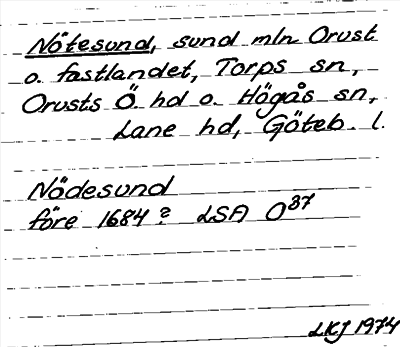 Nötesund, sund mln Orust
o. fastlandet, Torps sn,
Orusts Ö. hd o. Högås sn,
Lane hd, Göteb. l.
Nödesund
före 1684? LSA O37
LKJ 1974